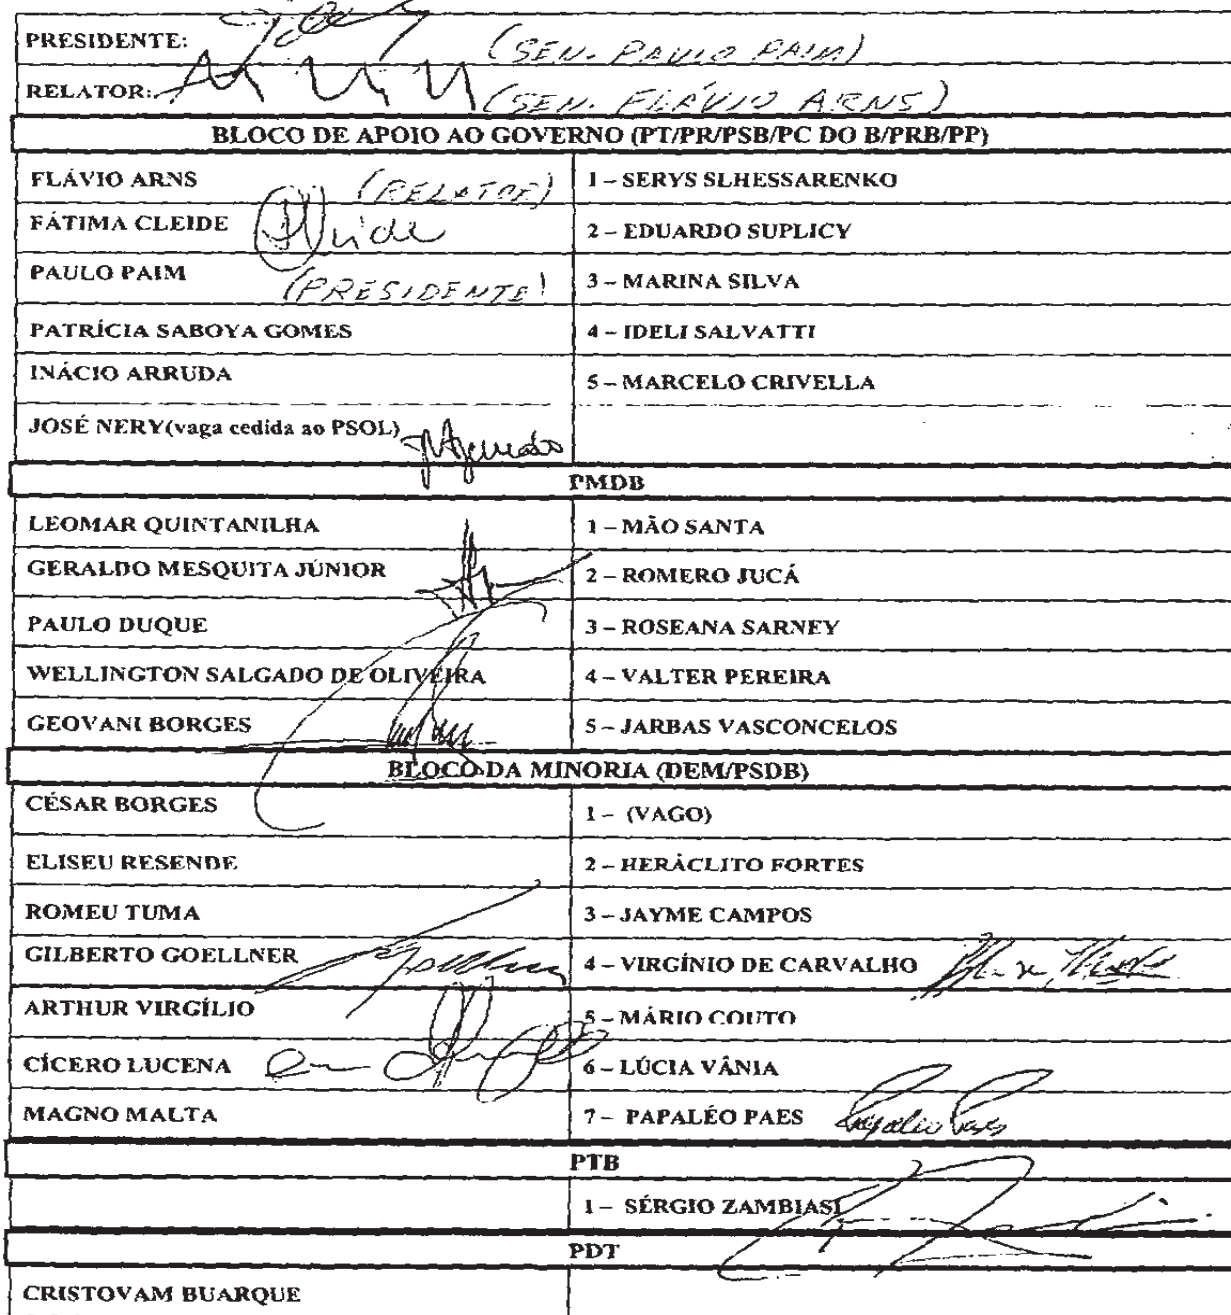 PRESIDENTE: (SEN. PAULO PAIM)
RELATOR: (SEN. FLÁVIO ARNS)
BLOCO DE APOIO AO GOVERNO (PT/PR/PSB/PC DO B/PRB/PP)
FLÁVIO ARNS (RELATOR) 1 – SERYS SLHESSARENKO
FÁTIMA CLEIDE 2 – EDUARDO SUPLICY
PAULO PAIM (PRESIDENTE) 3 – MARINA SILVA
PATRÍCIA SABOYA GOMES 4 – IDELI SALVATTI
INÁCIO ARRUDA 5 – MARCELO CRIVELLA
JOSÉ NERY(vaga cedida ao PSOL)
PMDB
LEOMAR QUINTANILHA 1 – MÃO SANTA
GERALDO MESQUITA JÚNIOR 2 – ROMERO JUCÁ
PAULO DUQUE 3 – ROSEANA SARNEY
WELLINGTON SALGADO DE OLIVEIRA 4 – VALTER PEREIRA
GEOVANI BORGES 5 – JARBAS VASCONCELOS
BLOCO DA MINORIA (DEM/PSDB)
CÉSAR BORGES 1 – (VAGO)
ELISEU RESENDE 2 – HERÁCLITO FORTES
ROMEU TUMA 3 – JAYME CAMPOS
GILBERTO GOELLNER 4 – VIRGÍNIO DE CARVALHO
ARTHUR VIRGÍLIO 5 – MÁRIO COUTO
CÍCERO LUCENA 6 – LÚCIA VÂNIA
MAGNO MALTA 7 – PAPALÉO PAES
PTB
1 – SÉRGIO ZAMBIASI
PDT
CRISTOVAM BUARQUE